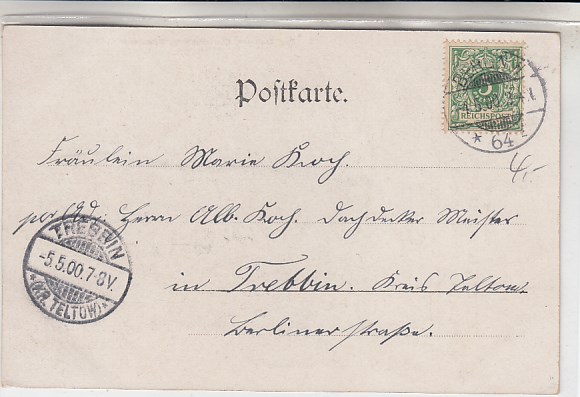 Postkarte.
5
REICHSPOST
* 64
4,-
Fräulein Marie Koch.
per Ad. Herrn Alb. Koch. Dachdecker Meister
TREBBIN
-5.5.00.7-8V.
*(KR. TELTOW)*
in Trebbin. Kreis Teltow.
Berlinerstraße.